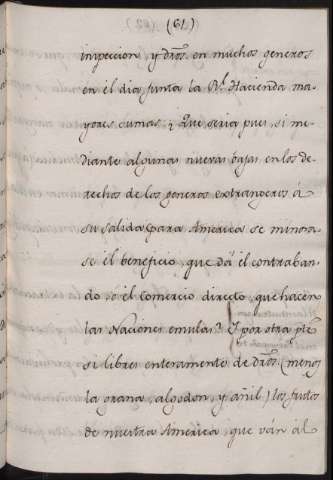 (61)
inpeccion y dros. en muchos generos
en él dia junta la Rl. Hacienda ma-
yores sumas; ¿Que seria pues, si me-
diante algunas nuevas bajas en los de-
rechos de los generos extrangeros á
su salida para America se minora-
se él beneficio, que dá él contraban-
do, ó él Comercio directo, que hacen
las Naciones emulas? Y por otra pte.
si libres enteramente de dros. (menos
la grana, algodon, y añil) los frutos
de nuestra America, que ván ál